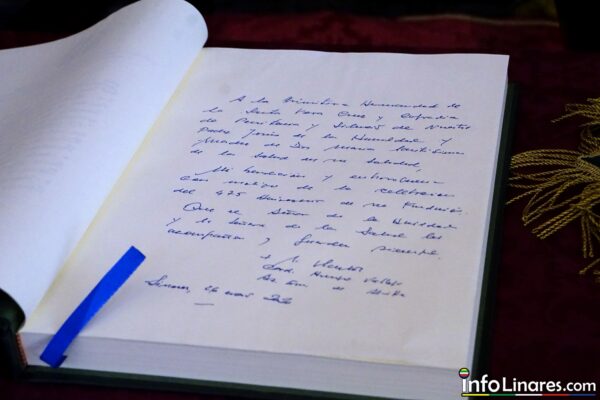 A la Primitiva Hermandad de
la Santa Vera Cruz y Cofradía
de Penitencia y Silencio de Nuestro
Padre Jesús de la Humildad y
Madre de Dios María Santísima
de la Salud en su Soledad,
Mi bendición y enhorabuena
con motivo de la celebración
del 425 Aniversario de su Fundación.
Que el Señor de la Humildad
y la Señora de la Salud les
acompañen y guarden siempre.
+
Linares, 26
infoLinares.com